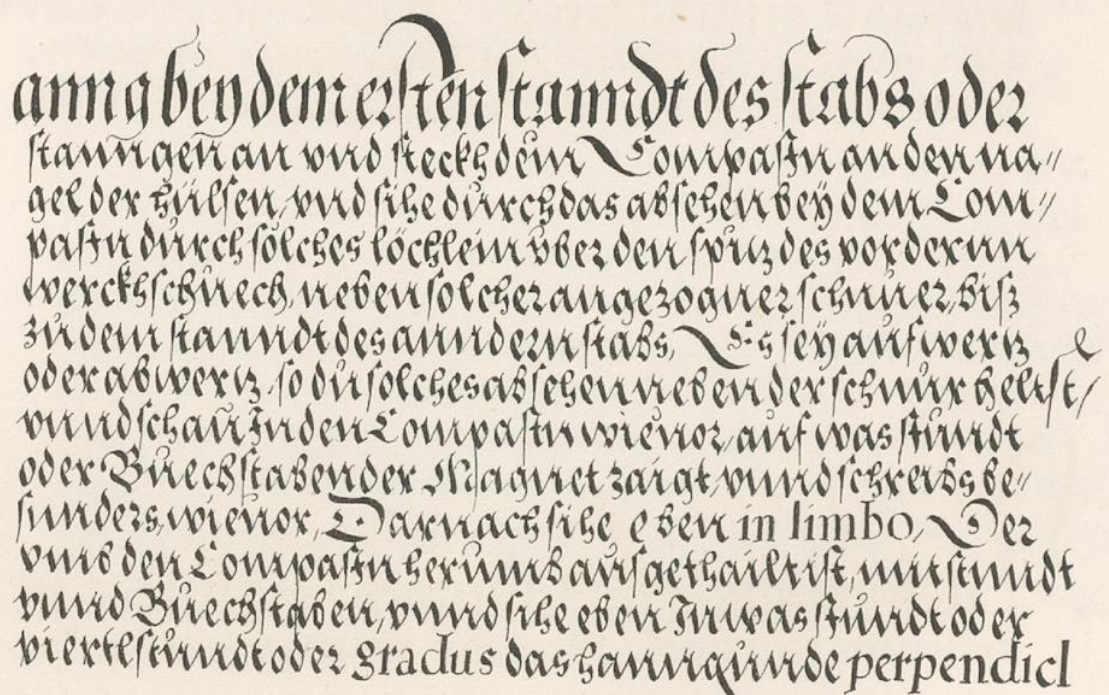 anng bey dem ersten stanndt des stabs oder
stanngen an vnd steckh dein Compassn an den na„
gel der hülsen, vnd sihe durch das absehen bey dem Com„
passn durch solches löchlein vber den spitz des vordernn
werckhschuech, neben solcher angezogner schnuer, bisz
zu dem stanndt des anndern stabs, Es sey aufwertz
oder abwertz, so du solches absehen neben der schnur heltst,
vnnd schau In den Compassn wieuor, auf was stundt
oder Buechstaben der Magnet zaigt, vnnd schreibs be„
sunders, wieuor, Darnach sihe eben in limbo, Der
vmb den Compassn herumb ausgethailt ist, mit stundt
vnnd Buechstaben, vnnd sihe eben In was stundt oder
viertlstundt oder gradus das hanngunde perpendicl